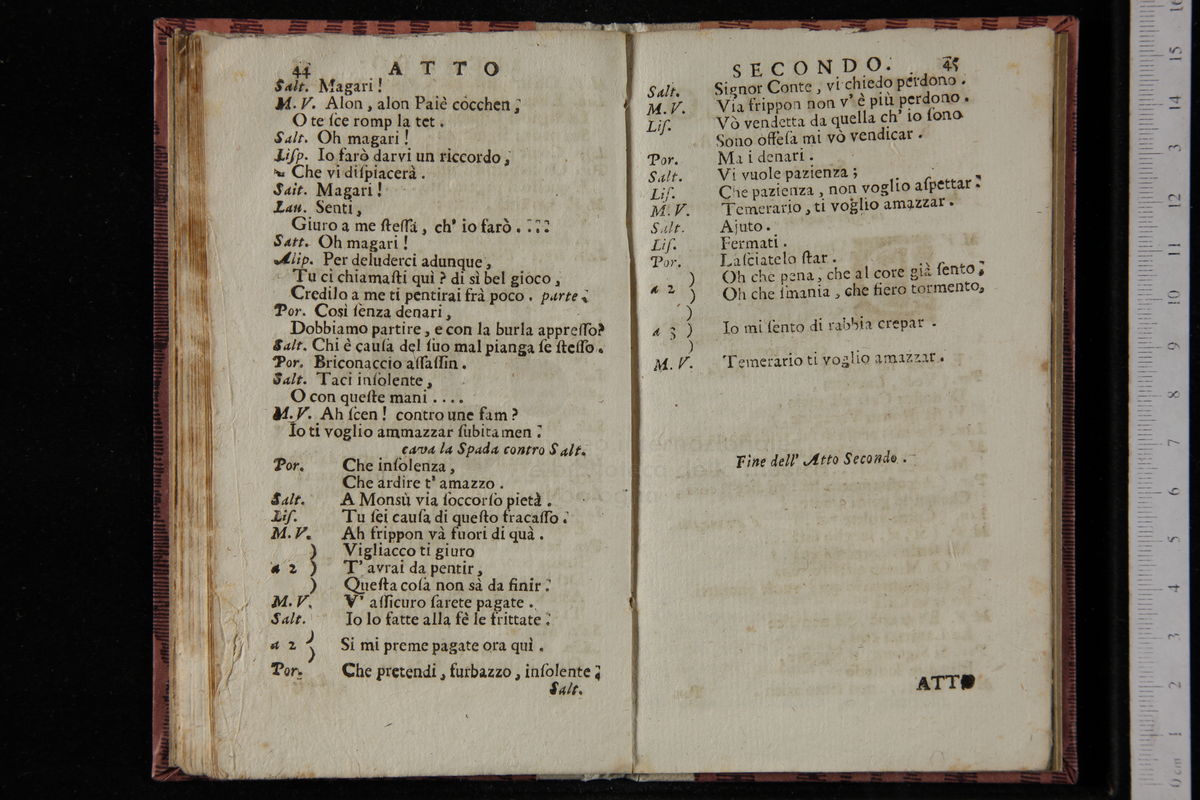 44 ATTO
Salt. Magari!
M. V. Alon, alon Paiè cocchen;
O te ſce romp la tet.
Salt. Oh magari!
Liſp. Io farò darvi un riccordo,
Che vi diſpiacerà.
Salt. Magari!
Lau. Senti,
Giuro a me ſteſſa, ch' io farò. . . . .
Satt. Oh magari!
Alip. Per deluderci adunque,
Tu ci chiamaſti quì? di sì bel gioco,
Credilo a me ti pentirai frà poco. parte.
Por. Così ſenza denari,
Dobbiamo partire, e con la burla appreſſo?
Salt. Chi è cauſa del ſuo mal pianga ſe ſteſſo.
Por. Briconaccio aſſaſſin.
Salt. Taci inſolente,
O con queſte mani . . . .
M. V. Ah ſcen! contro une fam?
Io ti voglio ammazzar ſubitamen.
cava la Spada contro Salt.
Por. Che inſolenza,
Che ardire t' amazzo.
Salt. A Monsù via ſoccorſo pietà.
Liſ. Tu ſei cauſa di queſto fracaſſo.
M. V. Ah frippon và fuori di quà.
) Vigliacco ti giuro
a 2 ) T' avrai da pentir,
) Queſta coſa non sà da finir.
M. V. V' aſſicuro ſarete pagate.
Salt. Io lo fatte alla fè le frittate.
a 2 ) Si mi preme pagate ora quì.
)
Por. Che pretendi, furbazzo, inſolente;
Salt.
SECONDO. 45
Salt. Signor Conte, vi chiedo perdono.
M. V. Via frippon non v' è più perdono.
Liſ. Vò vendetta da quella ch' io ſono
Sono offeſa mi vò vendicar.
Por. Ma i denari.
Salt. Vi vuole pazienza;
Liſ. Che pazienza, non voglio aſpettar.
M. V. Temerario, ti voglio amazzar.
Salt. Ajuto.
Liſ. Fermati.
Por. Laſciatelo ſtar.
a 2 ) Oh che pena, che al core già ſento;
) Oh che ſmania, che fiero tormento,
)
a 3 ) Io mi ſento di rabbia crepar.
)
M. V. Temerario ti voglio amazzar.
Fine dell' Atto Secondo.
ATTO